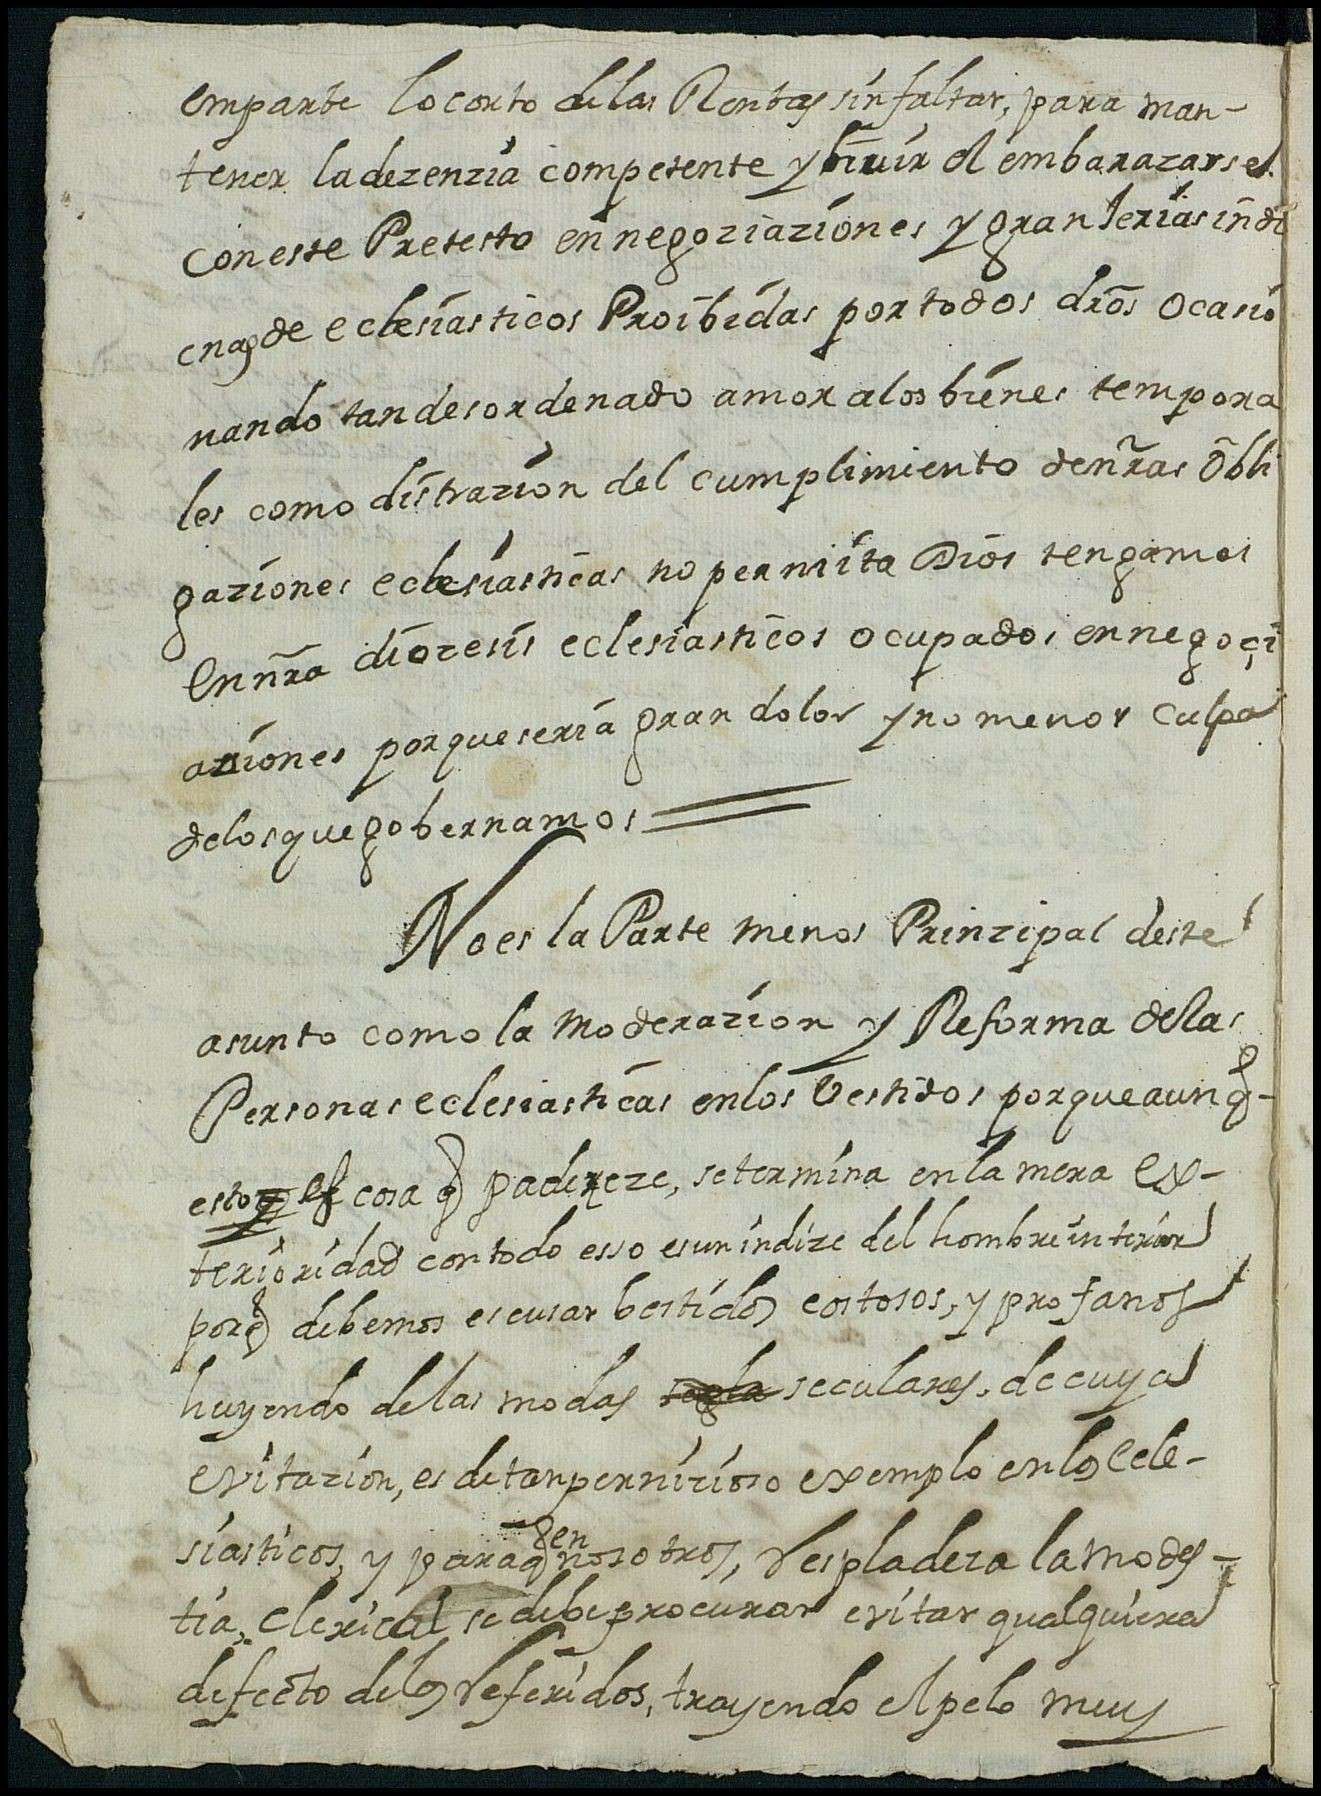 emparte lo corto de las Rentas sin faltar, para man-
tener la dezenzia competente y huir el embarazarse
con este Pretesto en negoziaziones y granjerias indi
cnas de eclesiasticos Proibidas por todos dr̄os ocasio
nando tan desordenado amor a los bienes tempora
les como distrazion del cumplimiento de nr̄as Obli
gaziones eclesiasticas no permita Dios tengamos
en nr̄a diozesis eclesiasticos ocupados en negoçi
aziones porque seria gran dolor y no menor culpa
de los que gobernamos
No es la Parte menos Prinzipal deste
asunto como la moderazion y Reforma de las
Personas eclesiasticas en los Vestidos porque aunq̄-
esto es cosa q̄ padereze, se termina en la mera ex-
terioridad con todo esso es un indize del hombre interior
porq̄ debemos escusar bestidos costosos, y profanos
huyendo de las modas seculares, de cuya
evitazion, es de tan pernizioso exemplo en los Ecle-
siasticos, y para q̄ en nosotros, respladeza la modes-
tia, clerical se debe procurar evitar qualquiera
defecto de los referidos, trayendo el pelo muy